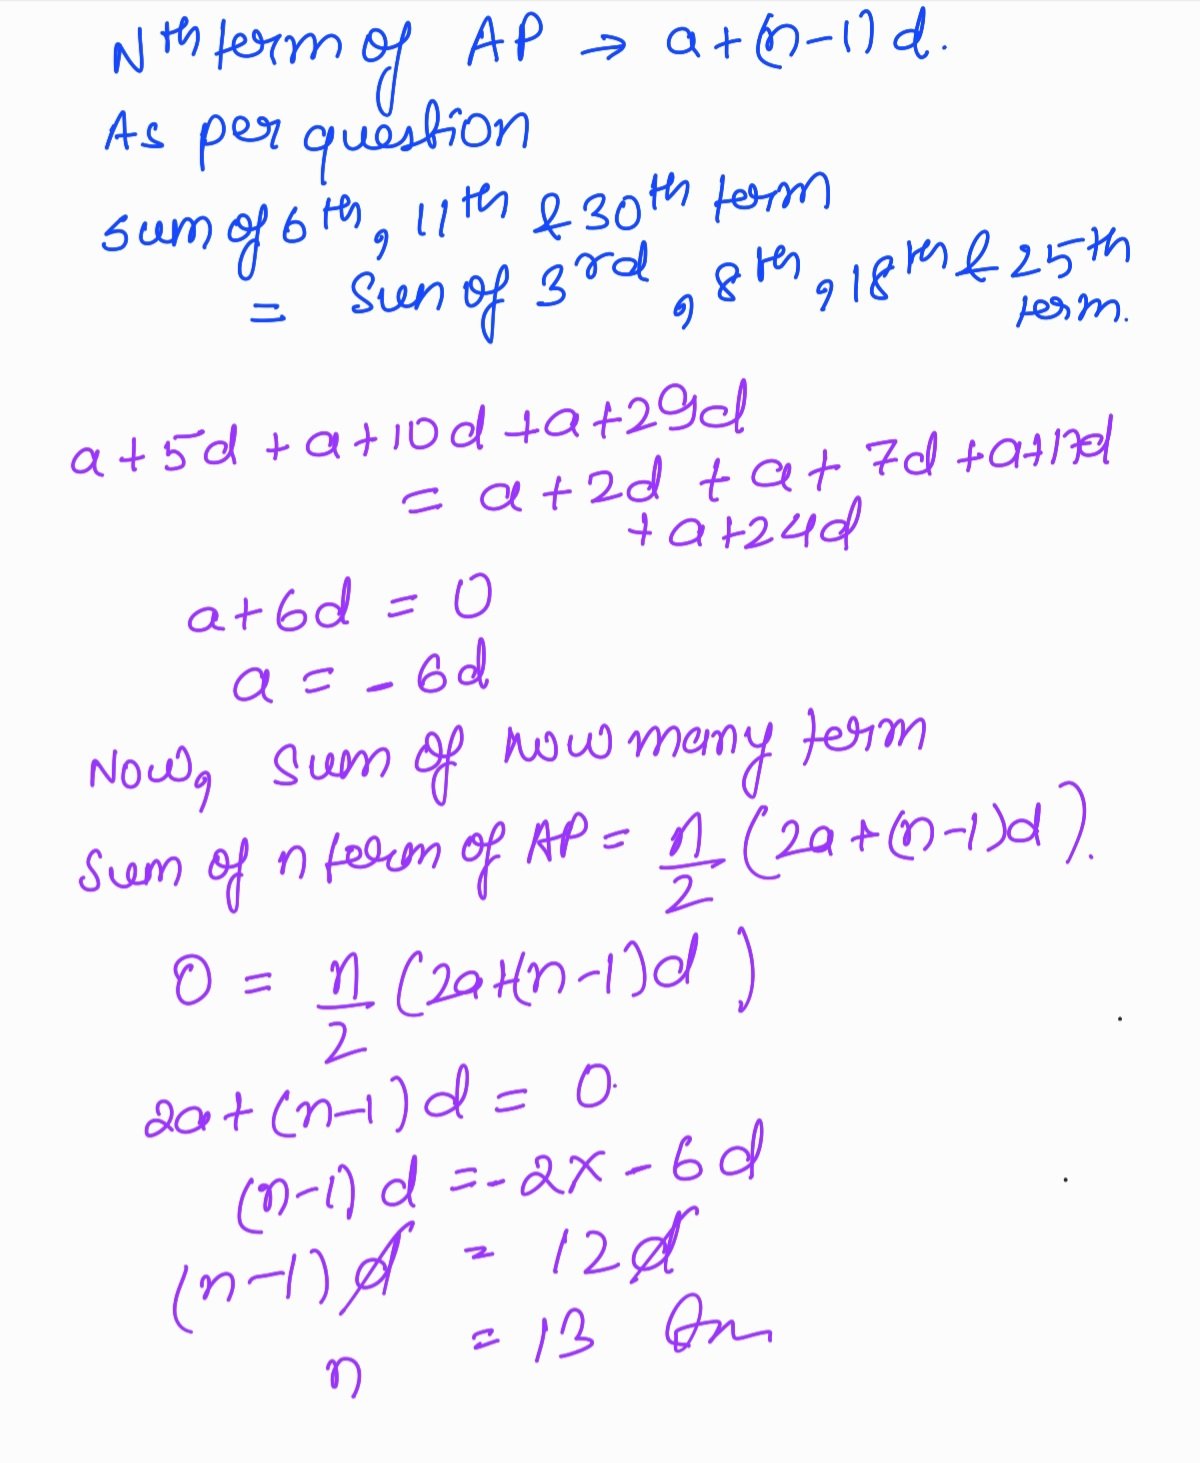 Nth term of AP → a+(n-1)d.
As per question
sum of 6th, 11th & 30th term
= Sum of 3rd, 8th, 18th & 25th
term.
a+5d+a+10d+a+29d
= a+2d+a+7d+a+17d
+a+24d
a+6d = 0
a = -6d
Now, sum of how many term
Sum of n term of AP = n/2 (2a+(n-1)d).
0 = n/2 (2a+(n-1)d)
2a+(n-1)d = 0.
(n-1)d = -2x-6d
(n-1)d = 12d
n = 13 Ans